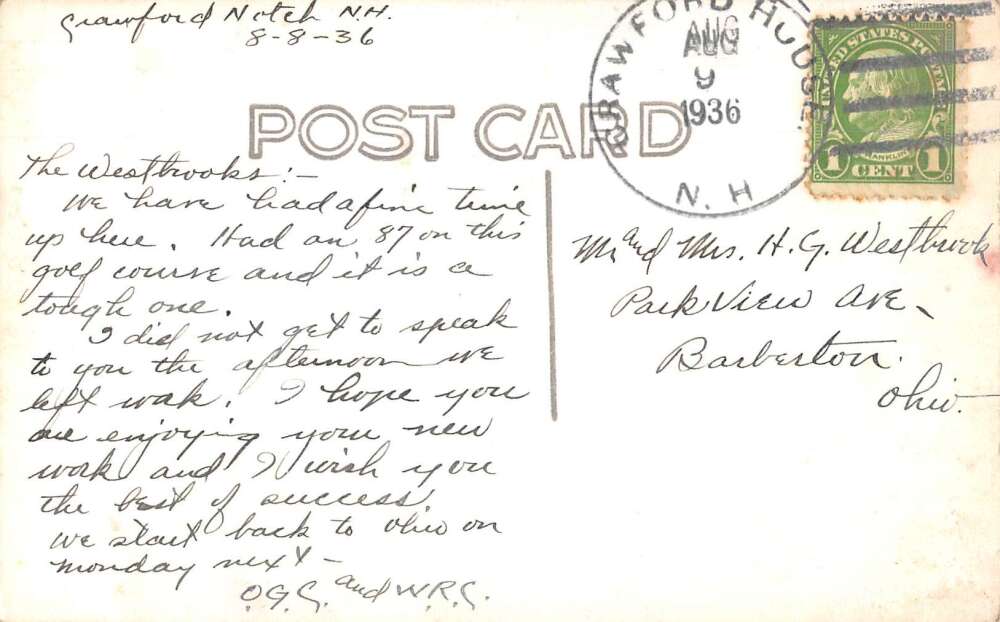 Crawford Notch N.H.
8-8-36
CRAWFORD HOUSE
AUG
9
1936
N.H
UNITED STATES POSTAGE
FRANKLIN
1 CENT 1
POST CARD
The Westbrooks:-
We have had a fine time
up here. Had an 87 on this
golf course and it is a
tough one.
I did not get to speak
to you the afternoon we
left work. I hope you
are enjoying your new
work and I wish you
the best of success.
We start back to Ohio on
Monday next-
O.G.C. and W.R.C.
Mr and Mrs. H.G. Westbrook
Park View Ave.
Barberton.
Ohio.